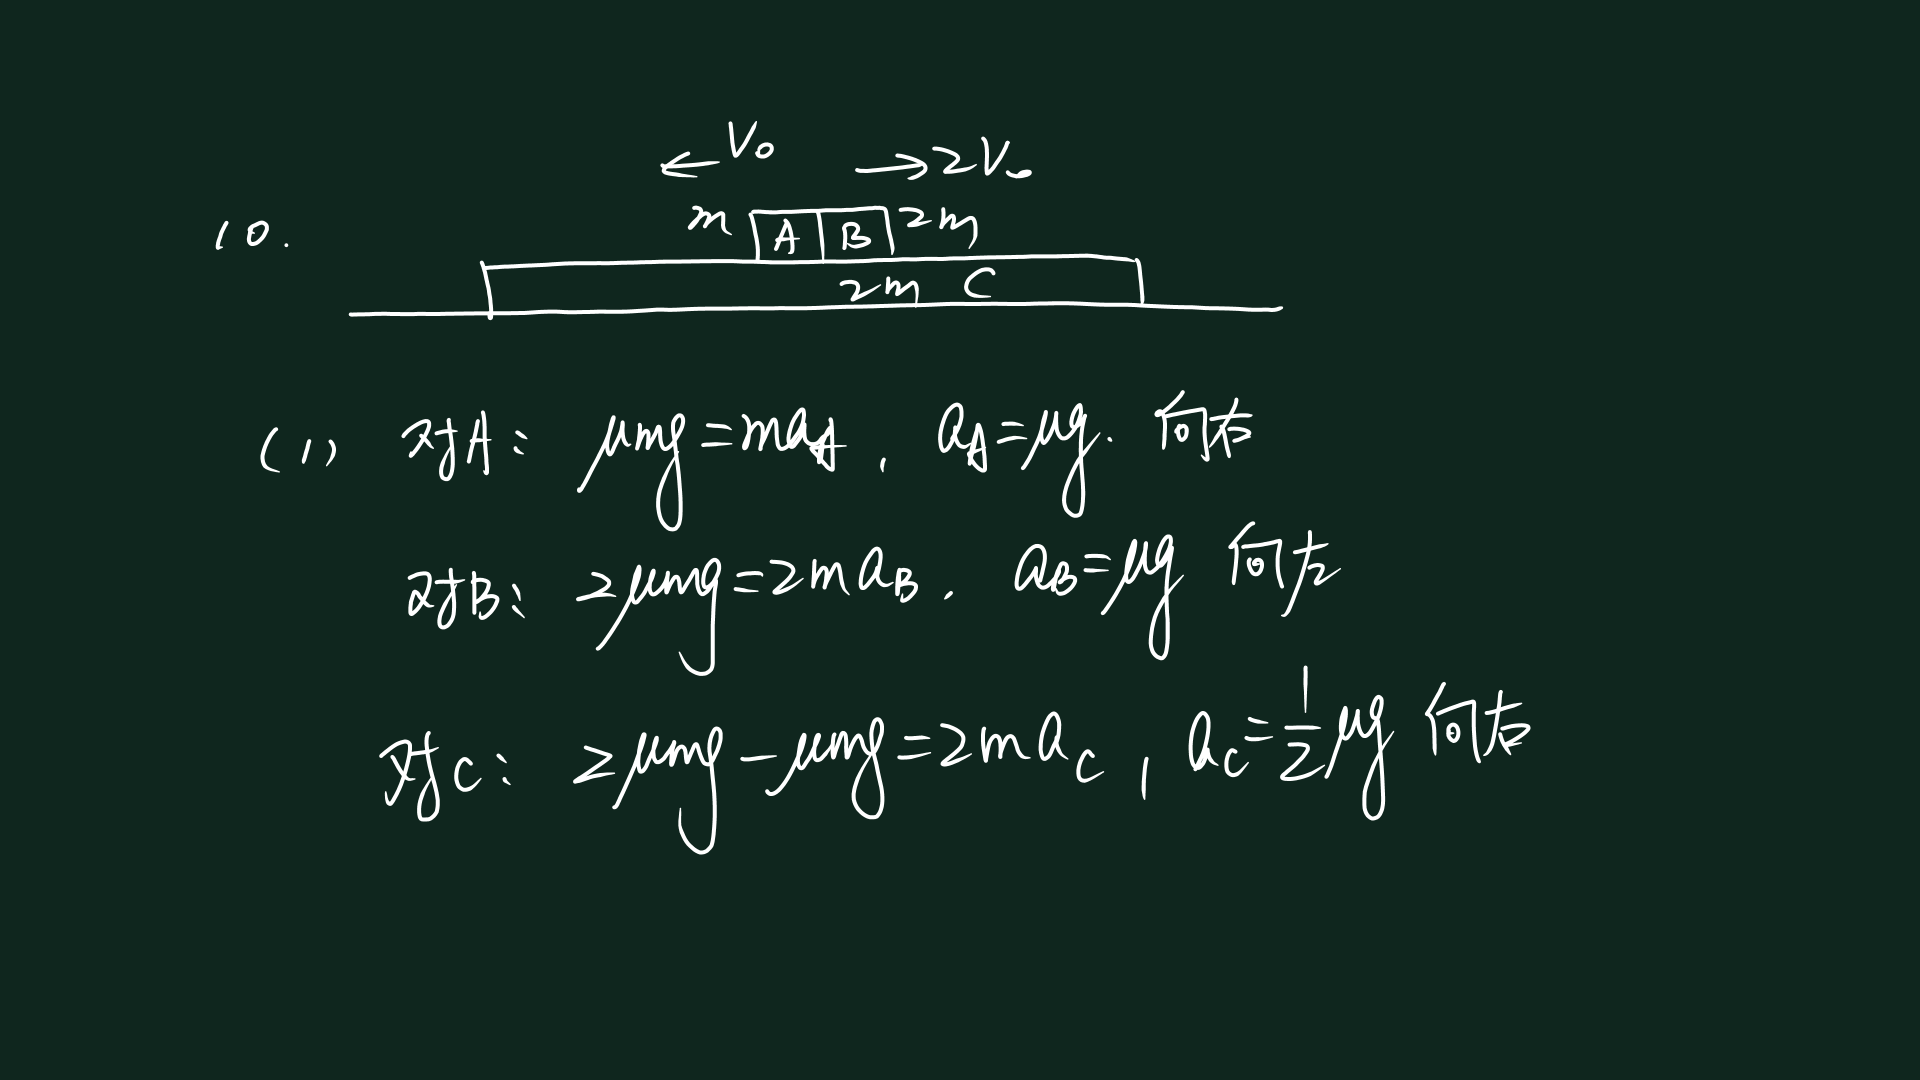 ← V₀ → 2V₀
10. m A B 2m
2m C
(1) 对A: μmg=ma_A, a_A=μg. 向右
对B: 2μmg=2ma_B. a_B=μg 向左
对C: 2μmg-μmg=2ma_C, a_C=1/2 μg 向右